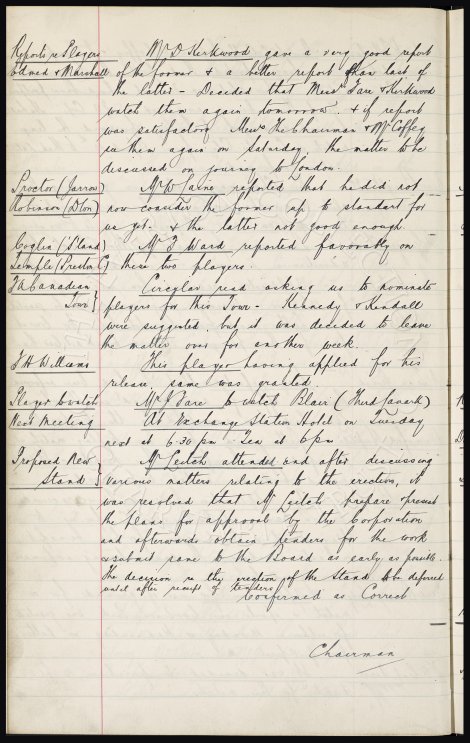 Reports re Players Mr D. Kirkwood gave a very good report
Edmed & Marshall of the former & a better report than last of
the latter - Decided that Messrs Fare & Kirkwood
watch them again tomorrow. & if report
was satisfactory Messrs The Chairman & Mr Coffey
see them again on Saturday. the matter to be
discussed on journey to London.
Proctor (Jarrow) Mr W reported that he did not
Robinson (Dton) now consider the former up to standart for
us yet. & the latter not good enough
Coglin (S'land) Mr F Ward reported favorably on
Temple (Preston C) these two players.
F A Canadian Circular read asking us to nominate
Tour } players for this Tour - Kennedy & Kendall
were suggested. but it was decided to leave
the matter over for another week.
J H Williams This player having applied for his
release, same was granted.
Player to watch Mr J Fare to watch Blair (Third Lanark)
Next Meeting At Exchange Station Hotel on Tuesday
next at 6.30 pm Tea at 6 pm
Proposed New Mr Leitch attended and after discussing
Stand } various matters relating to the erection, it
was resolved that Mr Leitch prepare & present
the plans for approval by the Corporation
and afterwards obtain tenders for the work
& submit same to the Board as early as possible.
The decision re the erection of the Stand to be deferred
until after receipt of tenders
Confirmed as Correct
Chairman